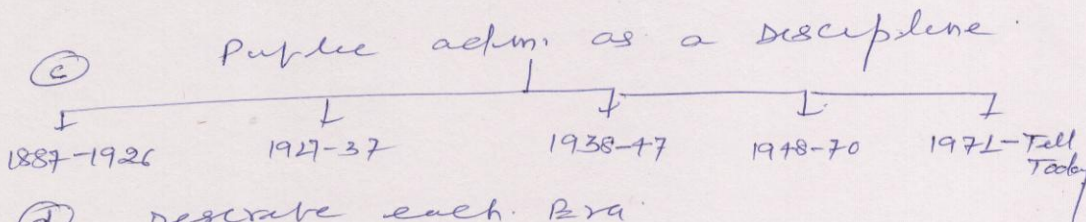 (c) Public adm. as a Discipline.
1887-1926 1927-37 1938-47 1948-70 1971-Till
Today
(d) Describe each Era